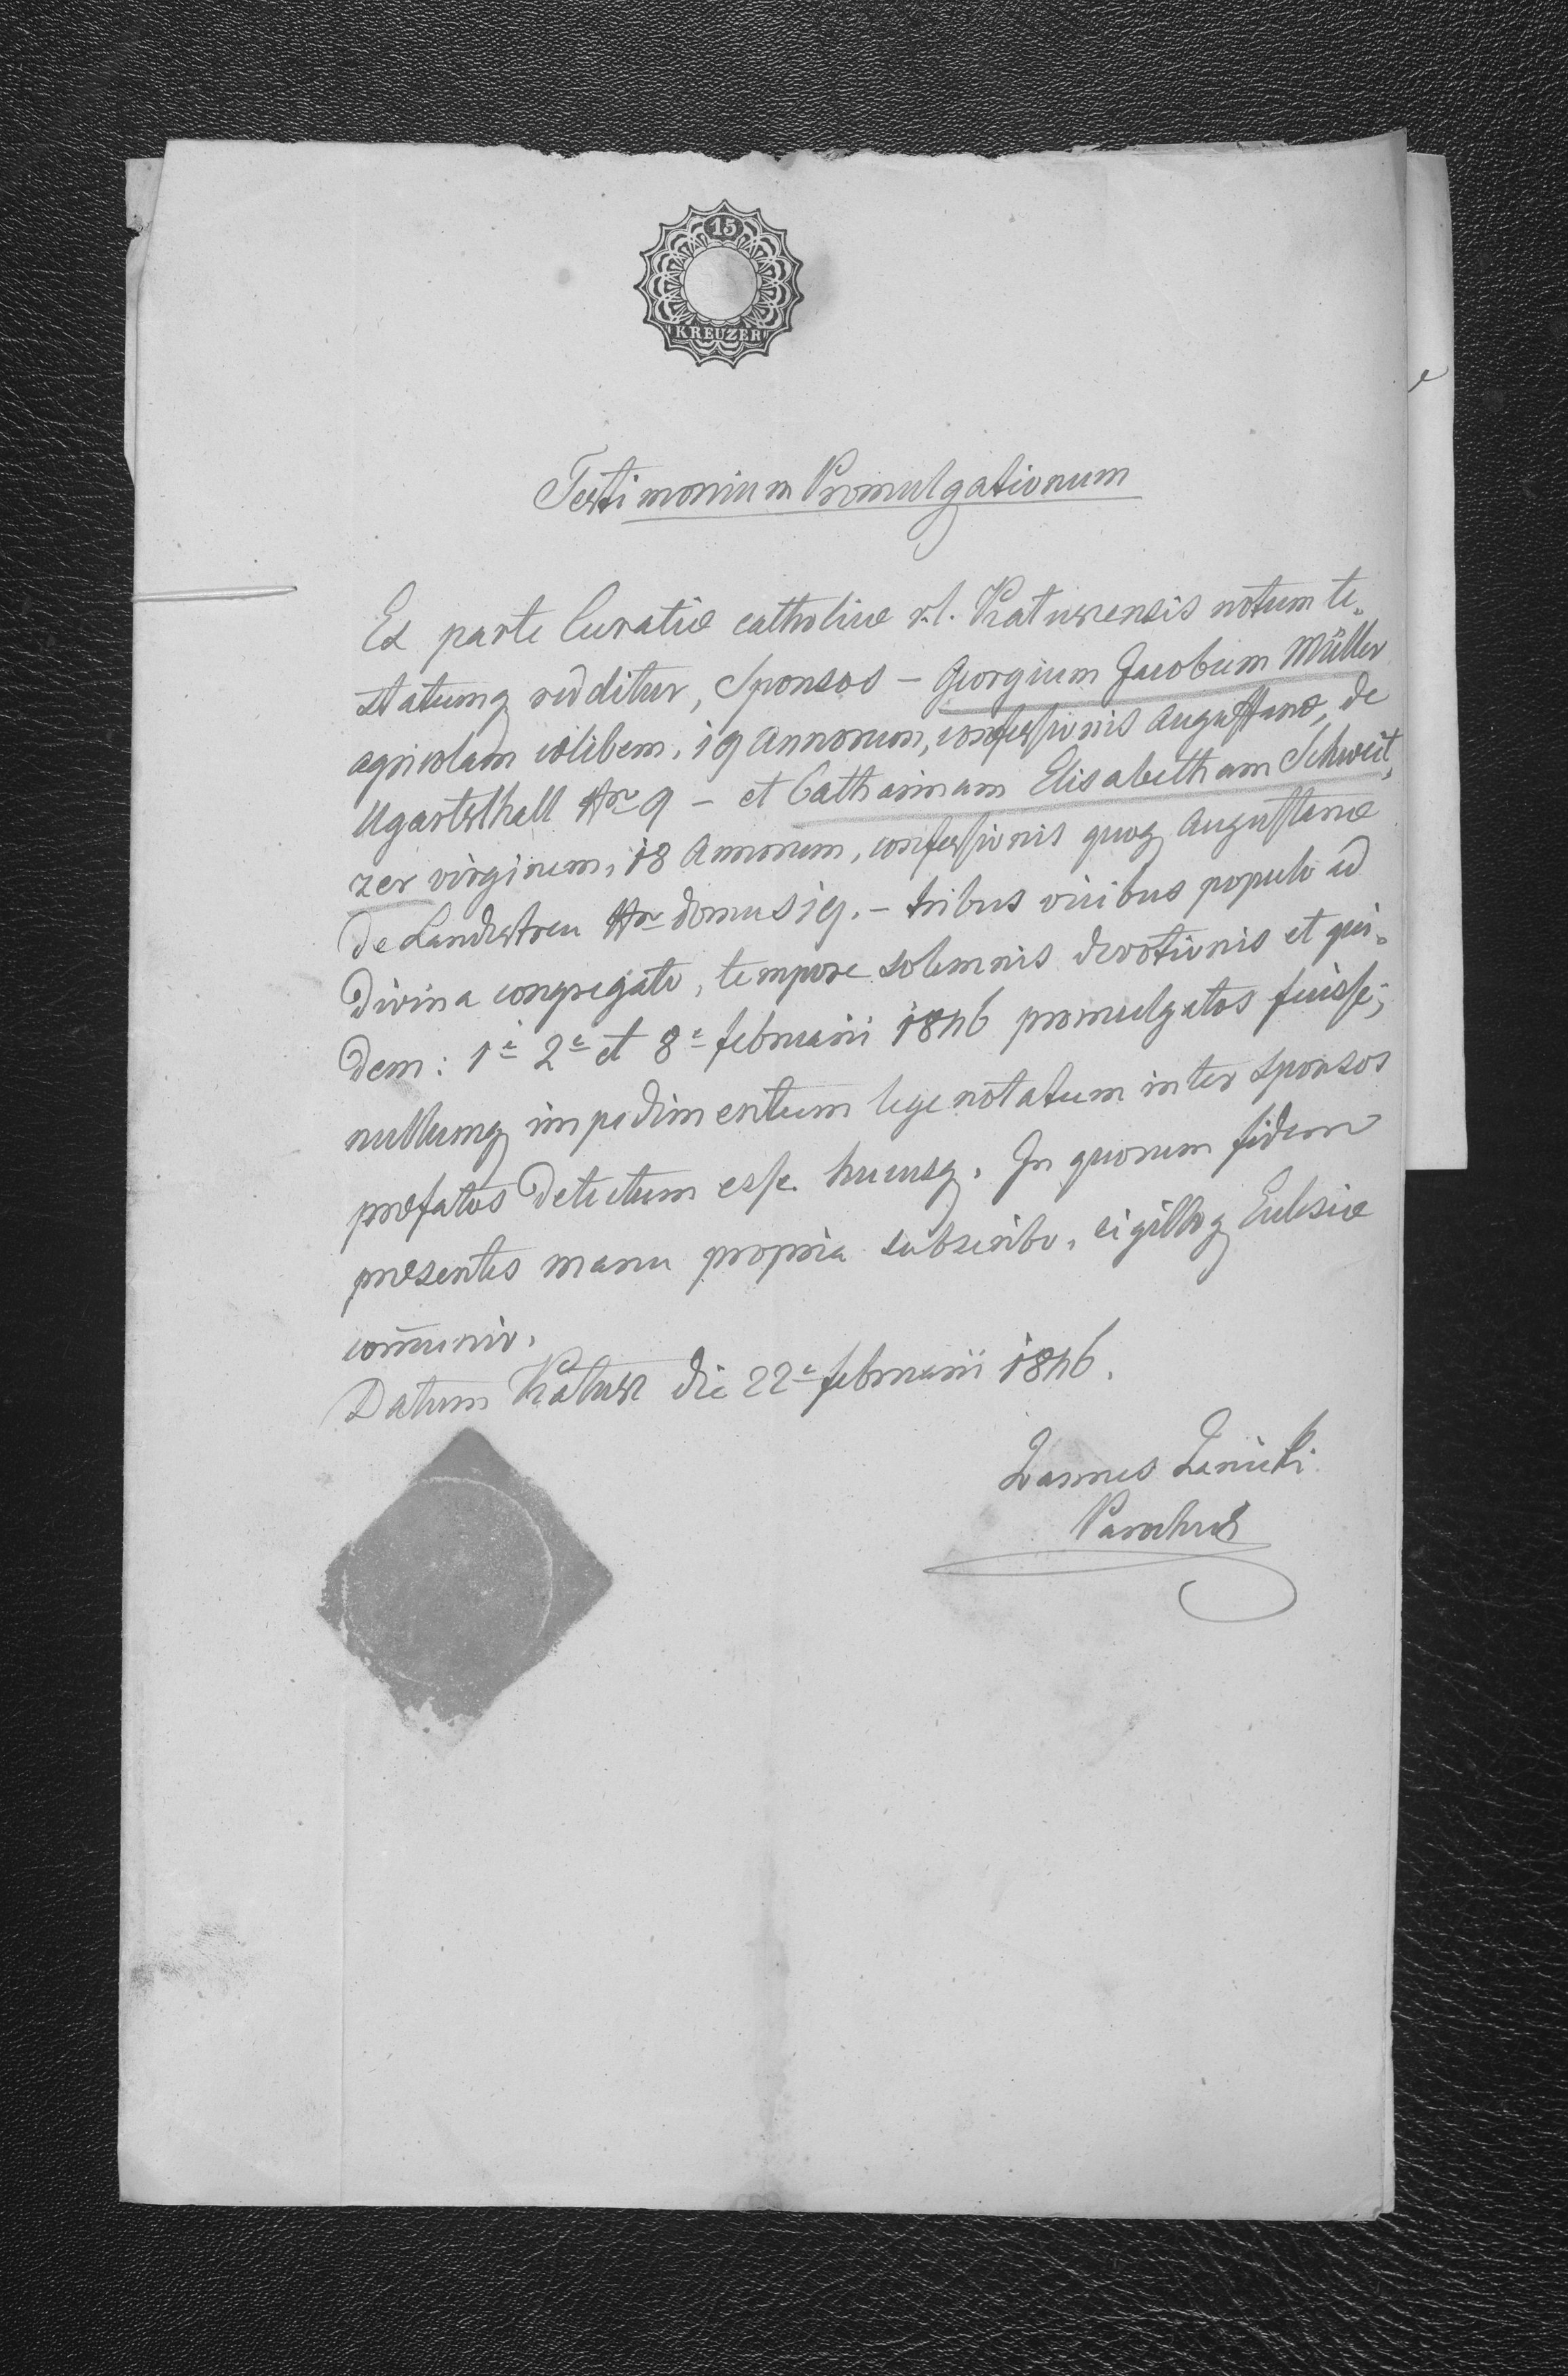 15
KREUZER
Testimonium Promulgationum
Ex parte Curatiæ catholicæ r.l. Kałusensis notum te„
statumq redditur, Sponsos – Georgium Jacobum Müller
agricolam cœlibem, 19 Annorum, confessionis Augustanæ, de
Ugartsthall Nr 9 – et Catharinam Elisabetham Schweit„
zer virginem, 18 Annorum, confessionis quoq Augustanæ
de Landestreu Nr domus 19. – tribus vicibus populo ad
Divina congregato, tempore solemnis devotionis et qui„
dem: 1a 2a et 8a februarii 1846 promulgatos fuisse;
nullumq impedimentum lege notatum inter sponsos
præfatos detectum esse hucusq. In quorum fidem
præsentes manu propria subscribo, sigilloq Eclesiæ
com̄unio.
Datum Kałusz die 22a februarii 1846.
Parochus